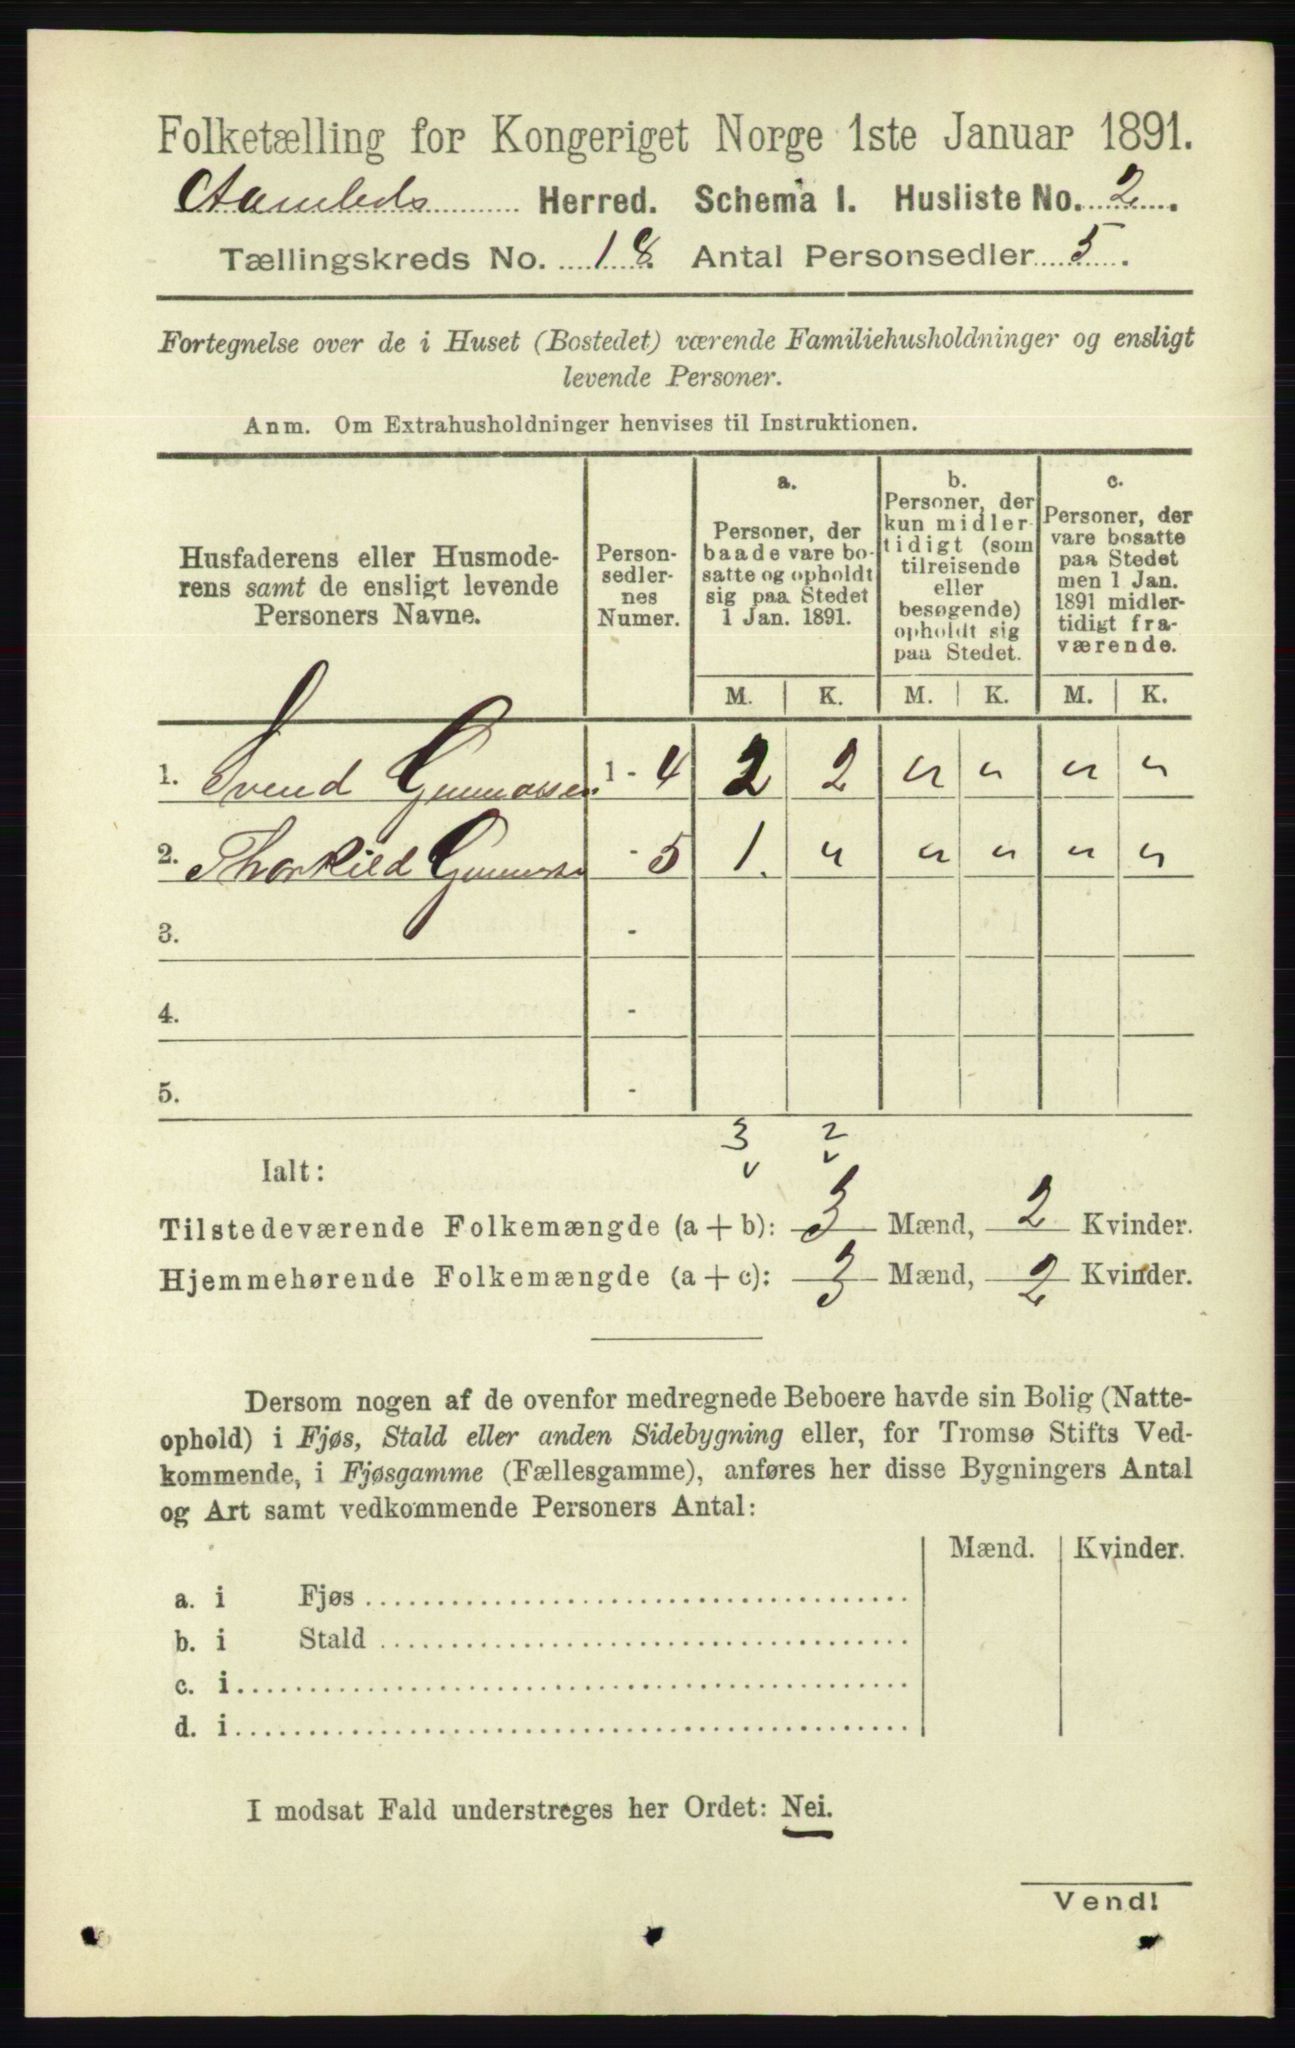 Folketælling for Kongeriget Norge 1ste Januar 1891.
Aamleds Herred. Schema I. Husliste No. 2.
Tællingskreds No. 18. Antal Personsedler 5.
Fortegnelse over de i Huset (Bostedet) værende Familiehusholdninger og ensligt
levende Personer.
Anm. Om Extrahusholdninger henvises til Instruktionen.
Husfaderens eller Husmode-
rens samt de ensligt levende
Personers Navne.
Person-
sedler-
nes
Numer.
a.
Personer, der
baade vare bo-
satte og opholdt
sig paa Stedet
1 Jan. 1891.
b.
Personer, der
kun midler-
tidigt (som
tilreisende
eller
besøgende)
opholdt sig
paa Stedet.
c.
Personer, der
vare bosatte
paa Stedet
men 1 Jan.
1891 midler-
tidigt fra-
værende.
M. K. M. K. M. K.
1. Svend Gunnassen 1 - 4 2 2 " " " "
2. Thorkild - 5 1. " " " " "
3. -
4. -
5. -
3 2
v v
Ialt:
Tilstedeværende Folkemængde (a + b): 3 Mænd, 2 Kvinder.
Hjemmehørende Folkemængde (a + c): 3 Mænd, 2 Kvinder.
Dersom nogen af de ovenfor medregnede Beboere havde sin Bolig (Natte-
ophold) i Fjøs, Stald eller anden Sidebygning eller, for Tromsø Stifts Ved-
kommende, i Fjøsgamme (Fællesgamme), anføres her disse Bygningers Antal
og Art samt vedkommende Personers Antal:
Mænd. Kvinder.
a. i Fjøs
b. i Stald
c. i
d. i
I modsat Fald understreges her Ordet: Nei.
Vend!